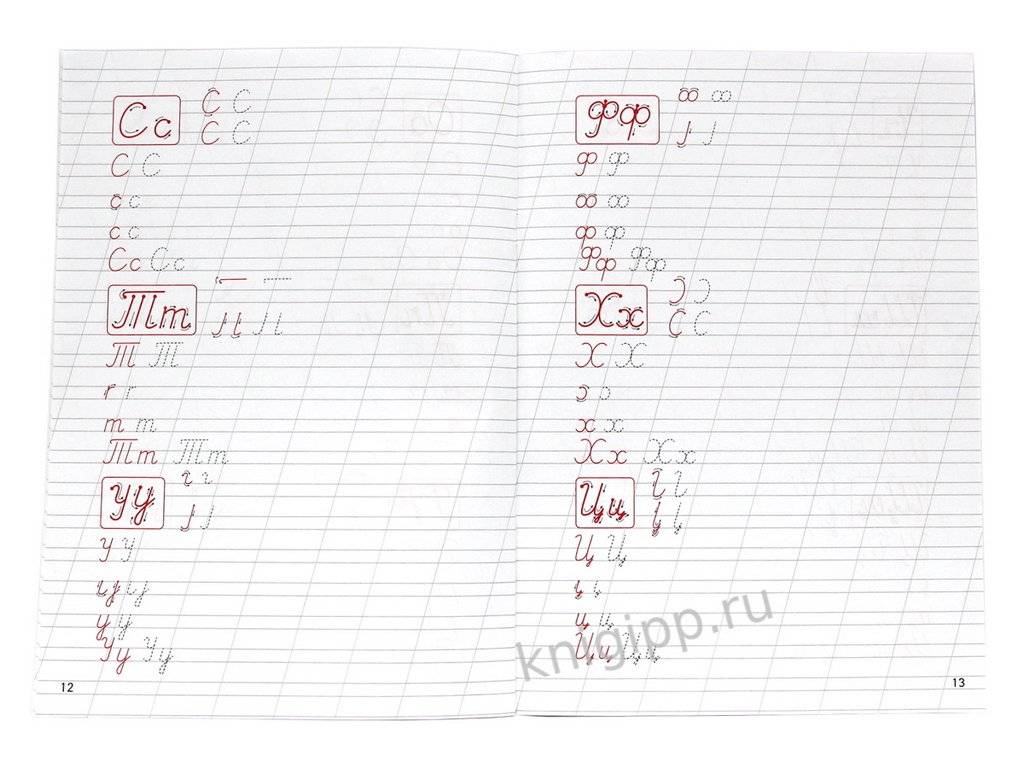 Сс С С
С С
С С
с с
с с
Сс Сс
Тт
Т Т
г г
т т
Тт Тт
Уу
У У
у у
Уу Уу
12
Фф
ф ф
Фф Фф
Хх
Х Х
х х
Хх Хх
Цц
Ц Ц
ц ц
Цц Цц
13
knigipp.ru